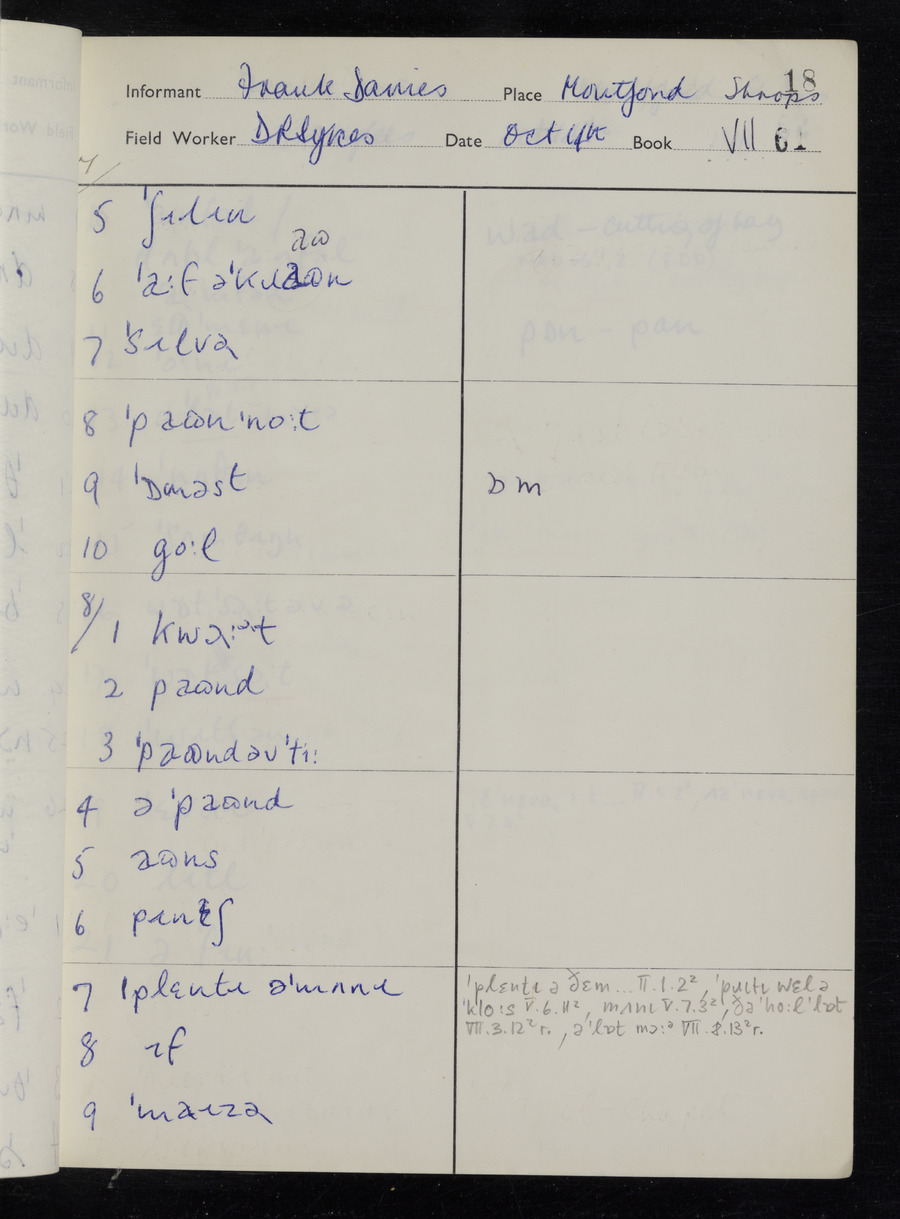 Informant Frank Davies Place Montford Shrops 18
Field Worker DRSykes Date Oct 4th Book VII 61
7/
5 ˈʃɪlɪn
əω
6 ˈaːf əˈkɹəωn
7 ˈsɪlvə
8 ˈpəωn ˈnoːt
9 ˈɒməst ɔm
10 goːl
8/1 kwəːᵊt
2 pəωnd
3 ˈpəωnd əv ˈtiː
4 ə ˈpəωnd
5 əωns
6 pɪnʃ
7 ˈplɛntɪ ə ˈmʌnɪ ˈplɛntɪ ə ðɛm... II.1.2², ˈpɹɪtɪ wɛl ə
ˈkloːs V.6.11², mʌnɪ V.7.3², ðə ˈhoːl ˈlɒt
VII.3.12² r., ə ˈlɒt mɔːᵊ VII.8.13² r.
8 ɪf
9 ˈmaɪzə